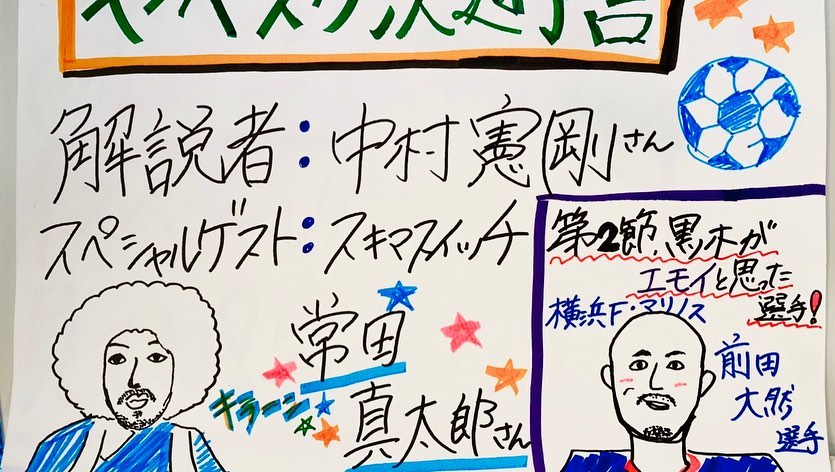 解説者:中村憲剛さん
スペシャルゲスト:スキマスイッチ
常田
真太郎さん
キラーン
第2節、黒木が
エモイと思った
選手!
横浜F・マリノス
前田
大然
選手